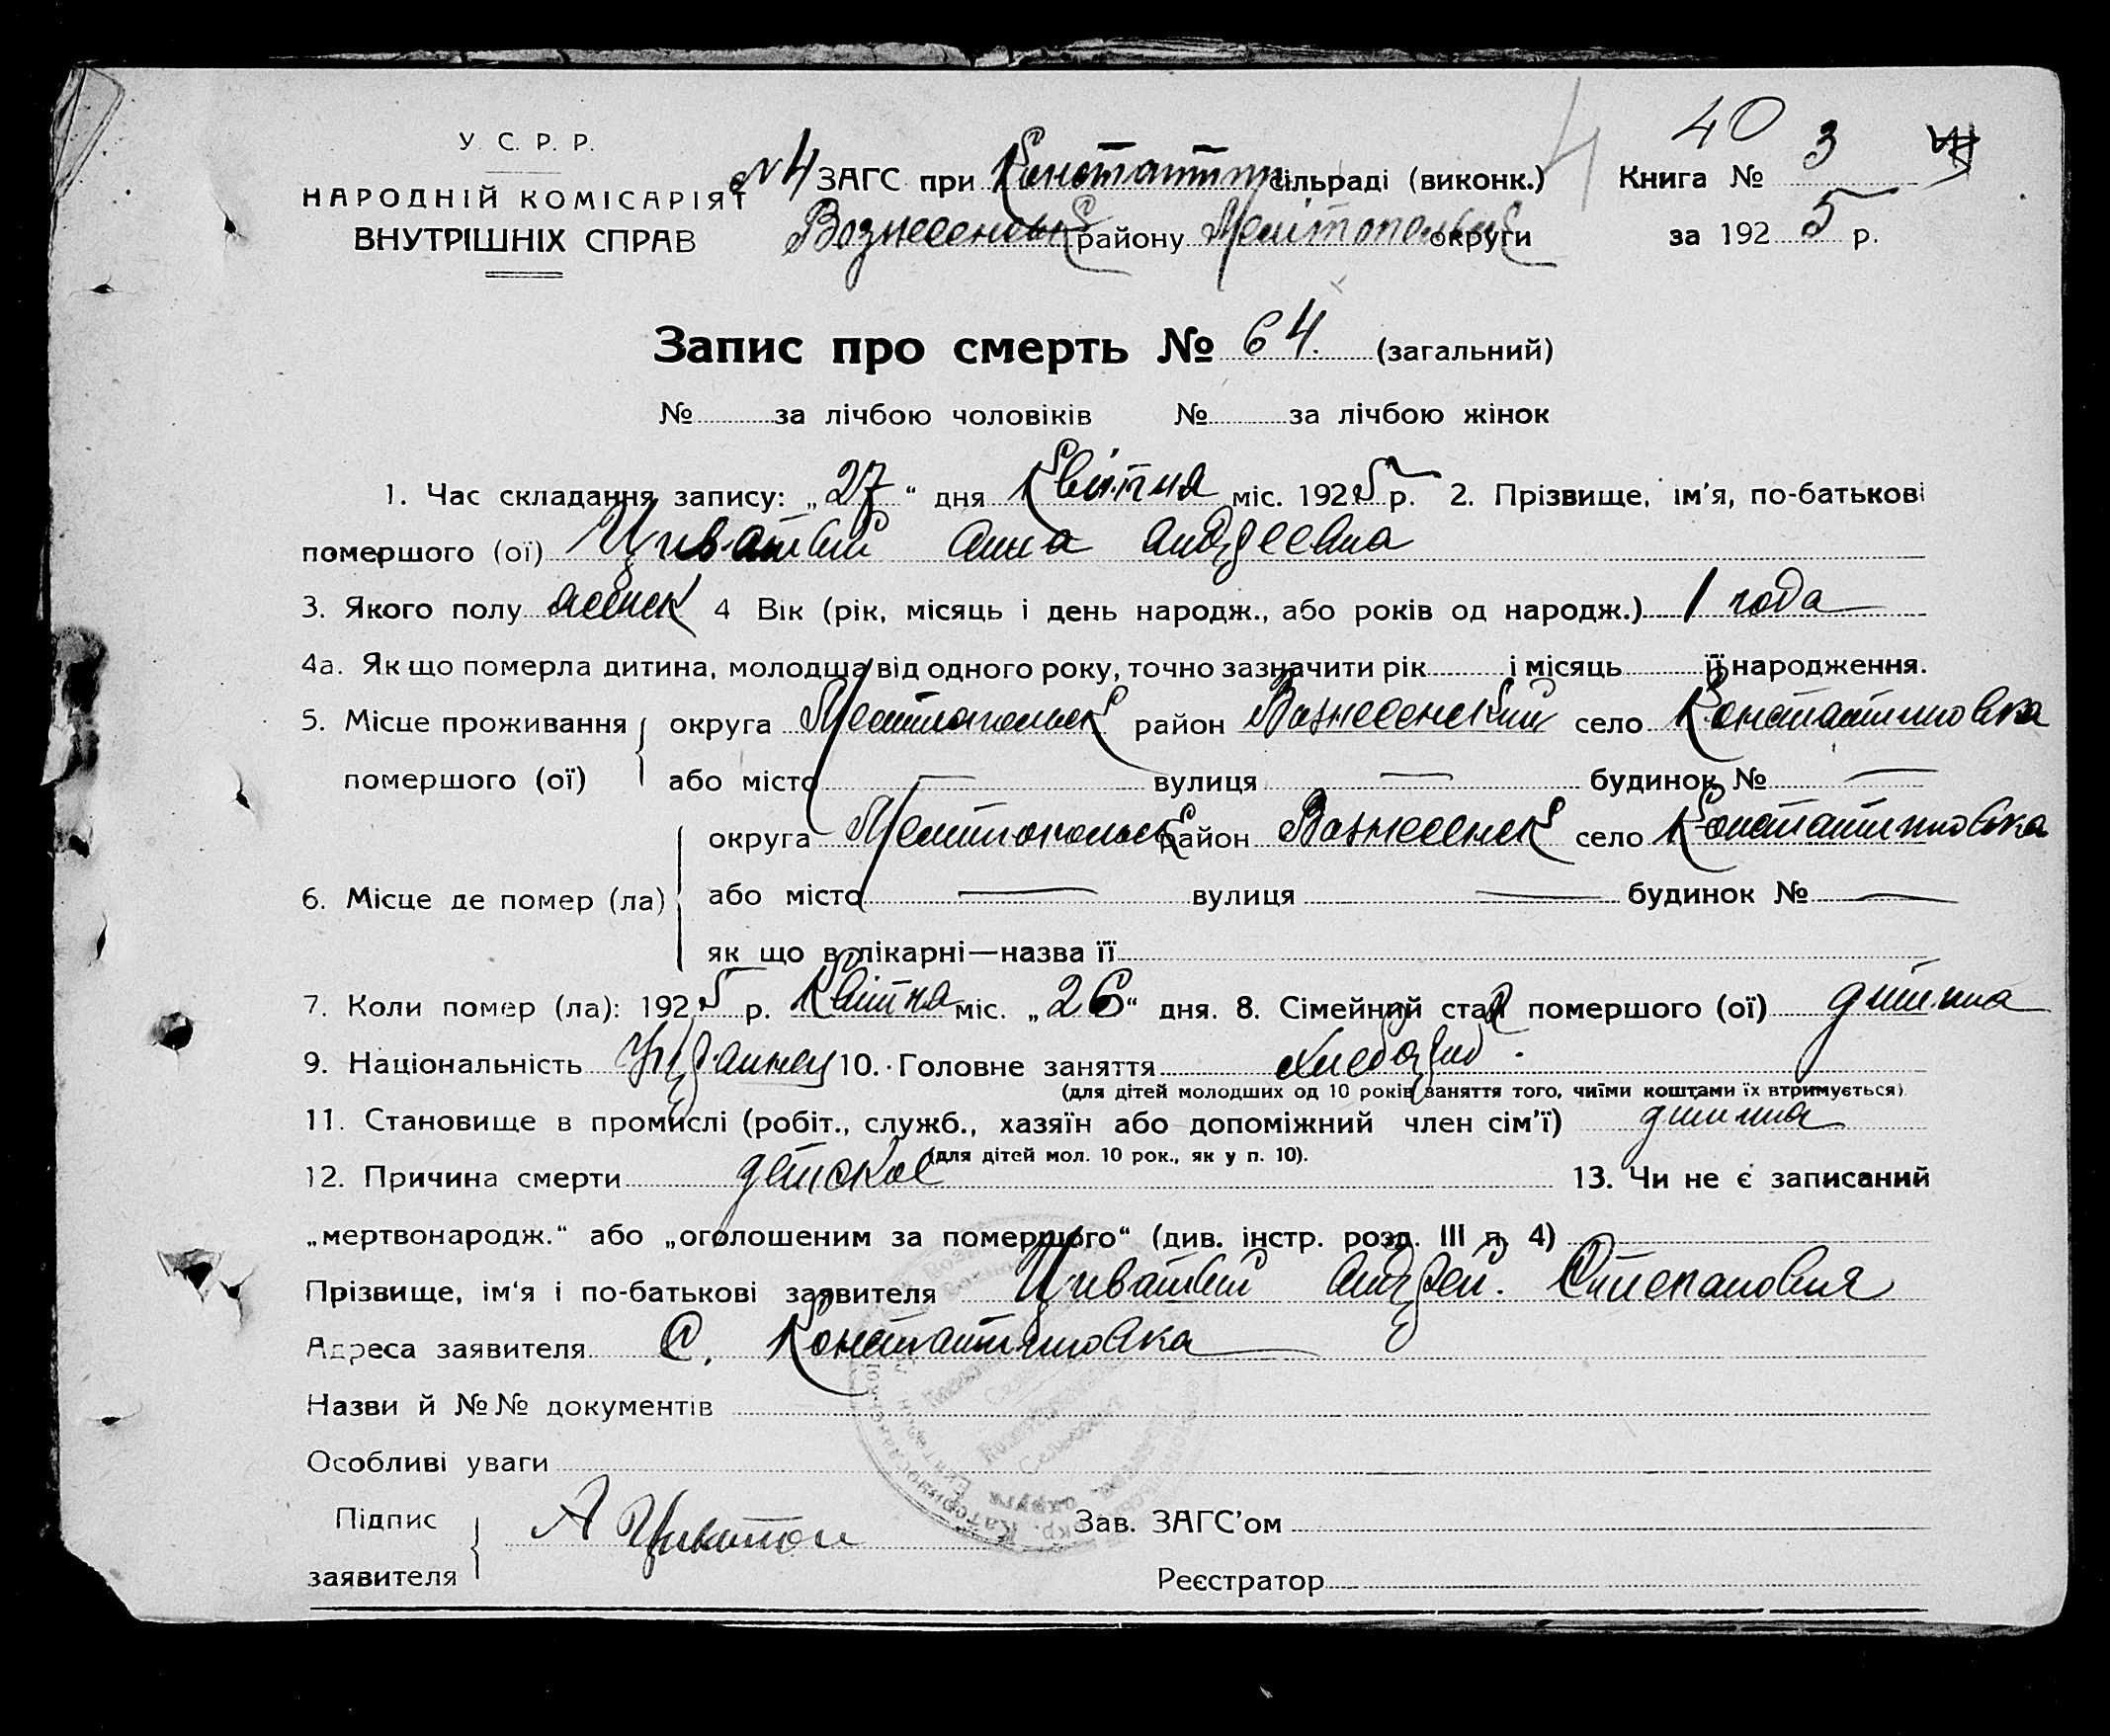 У. С. Р. Р.
НАРОДНІЙ КОМІСАРІЯТ
ВНУТРІШНІХ СПРАВ
№4 ЗАГС при Константин сільраді (виконк.)
Вознесенськ району Мелітопольськ округи
4
40
Книга № 3
за 1925 р.
Запис про смерть № 64. (загальний)
№ за лічбою чоловіків № за лічбою жінок
1. Час складання запису: „27“ дня Квітня міс. 1925 р. 2. Прізвище, ім'я, по-батькові
помершого (ої) Циватый Анна Андреевна
3. Якого полу женск 4 Вік (рік, місяць і день народж., або років од народж.) 1 года
4а. Як що померла дитина, молодша від одного року, точно зазначити рік і місяць її народження.
5. Місце проживання округа Мелитопольск район Вознесенский село Константиновка
помершого (ої) або місто — вулиця — будинок № —
округа Мелитопольск район Вознесенск село Константиновка
6. Місце де помер (ла) або місто — вулиця — будинок № —
як що в лікарні—назва її
7. Коли помер (ла): 1925 р. Квітня міс. „26“ дня. 8. Сімейний стан помершого (ої) дитина
9. Національність Украинец 10. Головне заняття Хлебороб.
(для дітей молодших од 10 років заняття того, чиїми коштами їх втримується)
11. Становище в промислі (робіт., служб., хазяїн або допоміжний член сім'ї) дитина
(для дітей мол. 10 рок., як у п. 10).
12. Причина смерти детское 13. Чи не є записаний
„мертвонародж.“ або „оголошеним за помершого“ (див. інстр. розд. III п. 4)
Прізвище, ім'я і по-батькові заявителя Циватый Андрей. Степановия
Адреса заявителя С. Константиновка
Назви й №№ документів
Особливі уваги
Підпис
заявителя А Циватой
Зав. ЗАГС'ом
Реєстратор